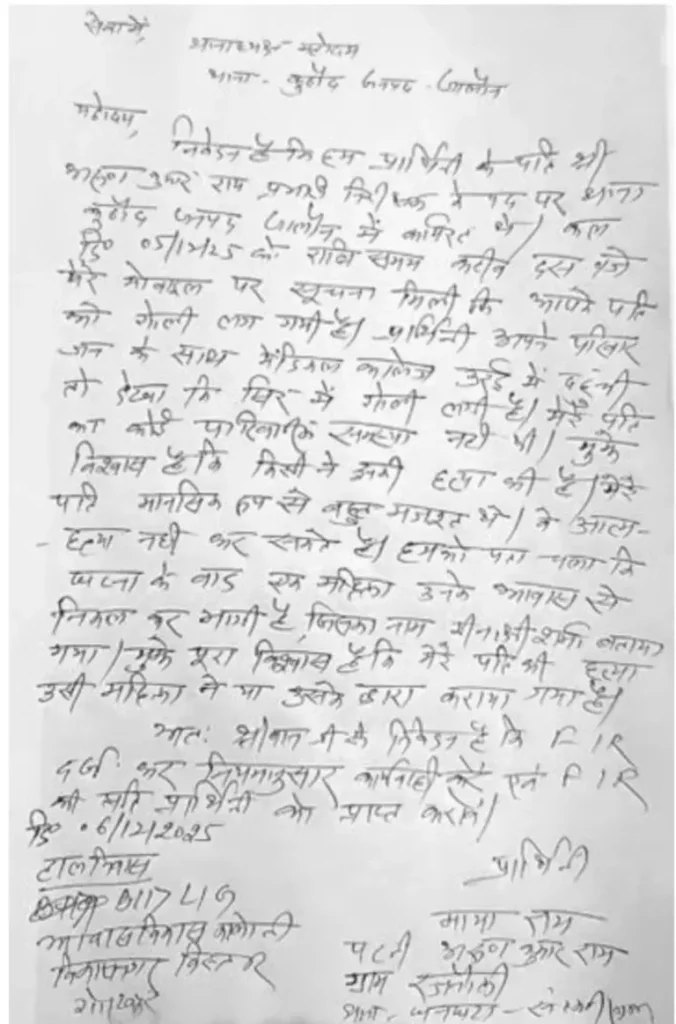 सेवा में,
थानाध्यक्ष महोदय
थाना - कुठौंद जनपद - जालौन
महोदय,
निवेदन है कि हम प्रार्थिनी के पति श्री
अरुण कुमार राय प्रभारी निरीक्षक के पद पर थाना
कुठौंद जनपद जालौन में कार्यरत थे। कल
दि० 05/12/25 को रात्रि समय करीब दस बजे
मेरे मोबाइल पर सूचना मिली कि आपके पति
को गोली लग गयी है। प्रार्थिनी अपने परिवार
जन के साथ मेडिकल कालेज उरई में पहुंची
तो देखा कि सिर में गोली लगी है। मेरे पति
का कोई पारिवारिक समस्या नहीं थी। मुझे
विश्वास है कि किसी ने उनकी हत्या की है। मेरे
पति मानसिक रूप से बहुत मजबूत थे। वे आत्म-
हत्या नहीं कर सकते है। हमको पता चला कि
घटना के बाद एक महिला उनके आवास से
निकल कर भागी है, जिसका नाम मीनाक्षी शर्मा बताया
गया। मुझे पूरा विश्वास है कि मेरे पति की हत्या
उसी महिला ने या उसके द्वारा कराया गया है।
अतः श्रीमान जी से निवेदन है कि FIR
दर्ज कर नियमानुसार कार्यवाही करें एवं FIR
की प्रति प्रार्थिनी को प्राप्त करायें।
दि० 06/12/2025
हाल निवास
B117 LIG
आवास विकास कालोनी
विकासनगर विस्तार
प्रार्थिनी
माया राय
पत्नी अरुण कुमार राय
ग्राम
थाना - धनघटा -